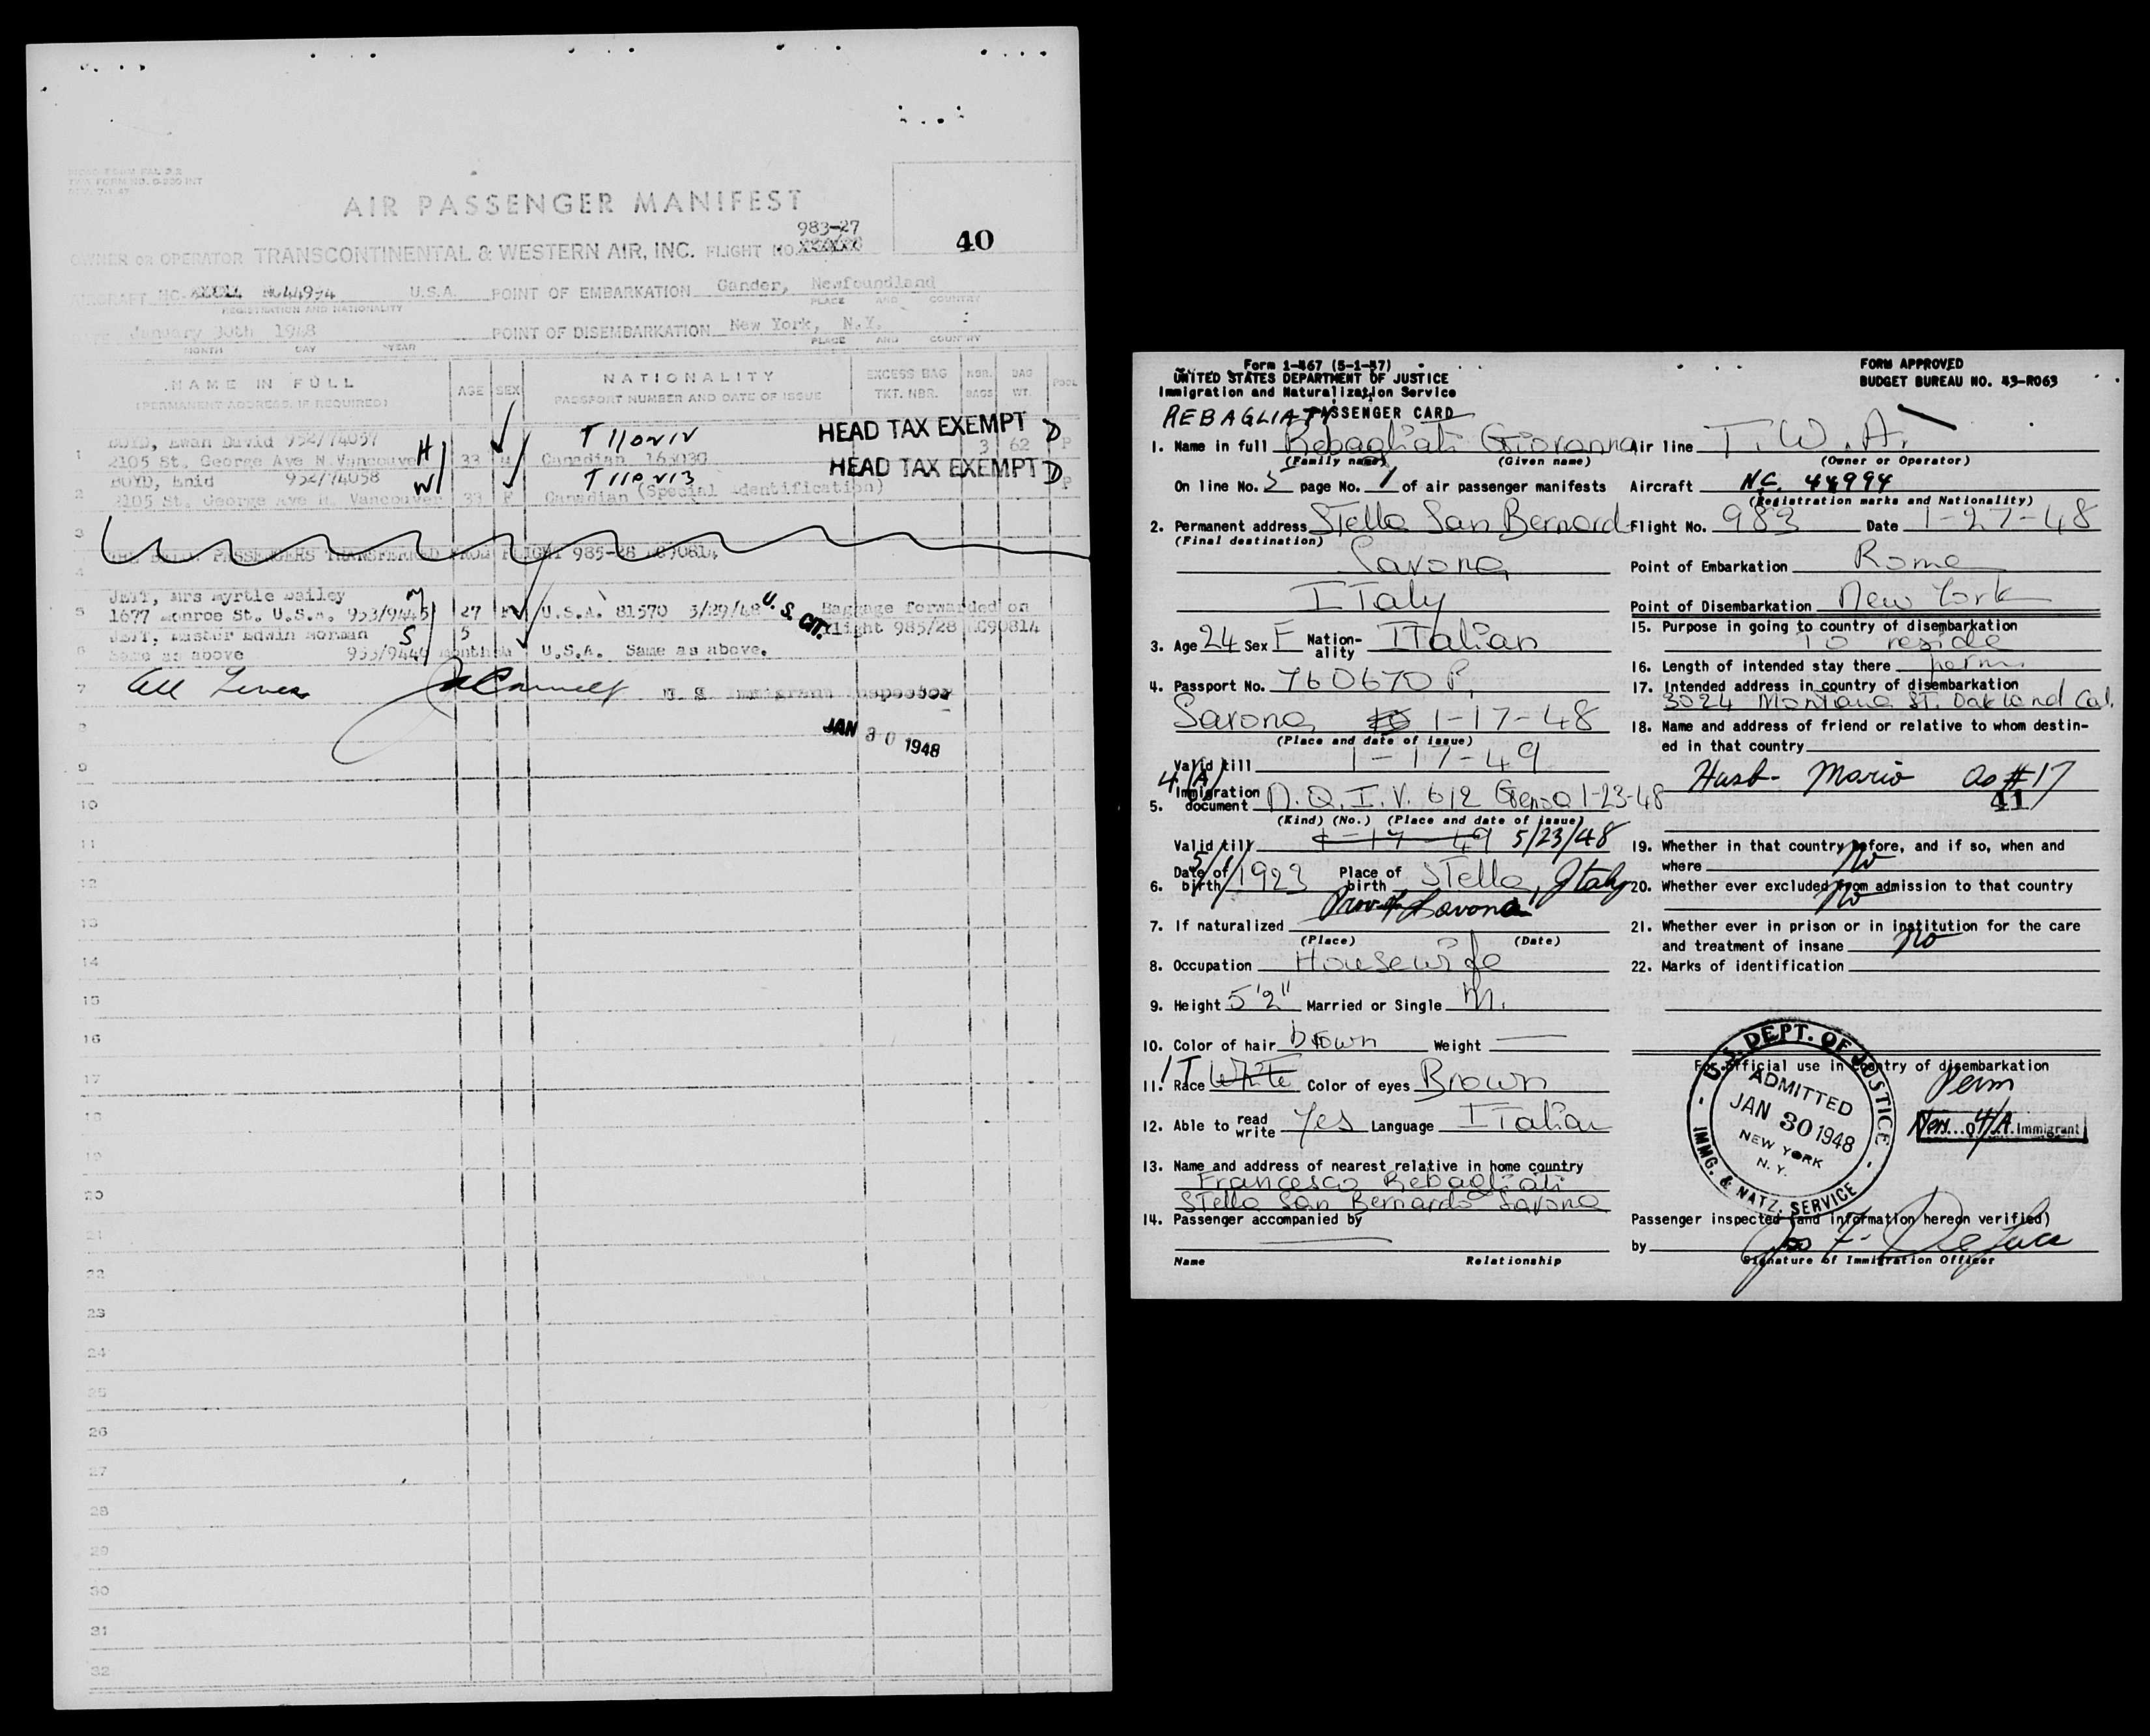 AIR PASSENGER MANIFEST
983-27
40
OWNER OR OPERATOR TRANSCONTINENTAL & WESTERN AIR, INC. FLIGHT NO.
AIRCRAFT NC. U.S.A. POINT OF EMBARKATION Gander, Newfoundland
REGISTRATION AND NATIONALITY PLACE AND COUNTRY
DATE January 30th 1948 POINT OF DISEMBARKATION New York, N.Y.
MONTH DAY YEAR PLACE AND COUNTRY
NAME IN FULL AGE SEX NATIONALITY EXCESS BAG NBR. BAG POOL
(PERMANENT ADDRESS, IF REQUIRED) PASSPORT NUMBER AND DATE OF ISSUE TKT. NBR. BAGS WT.
HEAD TAX EXEMPT D
BOYD, Ewan David 952/74057 H 3 62 P
1 2105 St. George Ave N. Vancouver 33 M Canadian 165030
HEAD TAX EXEMPT D
BOYD, Enid 952/74058 W P
2 2105 St. George Ave N. Vancouver 33 F Canadian (Special identification)
3
PASSENGERS TRANSFERRED FROM FLIGHT 985-28 NC90814
4
JETT, Mrs Myrtle Bailey M
5 1677 Monroe St. U.S.A. 953/9445 27 F U.S.A. 81570 5/29/48 U.S. CIT. Baggage forwarded on
JETT, Master Edwin Norman S 5 flight 985/28 NC90814
6 Same as above 953/9446 months M U.S.A. Same as above.
7 U S Immigrant Inspector
8 JAN 30 1948
9
10
11
12
13
14
15
16
17
18
19
20
21
22
23
24
25
26
27
28
29
30
31
32
Form I-467 (5-1-47) FORM APPROVED
UNITED STATES DEPARTMENT OF JUSTICE BUDGET BUREAU NO. 43-R063
Immigration and Naturalization Service
REBAGLIATI PASSENGER CARD
1. Name in full Rebagliati Giovanna Air line T.W.A.
(Family name) (Given name) (Owner or Operator)
On line No. 5 page No. 1 of air passenger manifests Aircraft NC. 44994
(Registration marks and Nationality)
2. Permanent address Stella San Bernard Flight No. 983 Date 1-27-48
(Final destination)
Savona Point of Embarkation Rome
Italy Point of Disembarkation New York
15. Purpose in going to country of disembarkation
3. Age 24 Sex F Nation-ality Italian To reside
16. Length of intended stay there perm.
4. Passport No. 760670 P. 17. Intended address in country of disembarkation
3024 Montana St. Oakland Cal.
Savona 1-17-48 18. Name and address of friend or relative to whom destin-
(Place and date of issue) ed in that country
Valid till 1-17-49
4(A) Husb- Mario as #17
5. Immigration document N.Q.I.V. 612 Genoa 1-23-48 41
(Kind) (No.) (Place and date of issue)
Valid till 1-17-49 5/23/48 19. Whether in that country before, and if so, when and
where No
6. Date of birth 5/1/1923 Place of birth Stella, Italy 20. Whether ever excluded from admission to that country
Prov of Savona No
7. If naturalized 21. Whether ever in prison or in institution for the care
(Place) (Date) and treatment of insane No
8. Occupation Housewife 22. Marks of identification
9. Height 5'2" Married or Single M.
10. Color of hair brown Weight
For official use in country of disembarkation
11. Race White IT Color of eyes Brown Perm
12. Able to read write Yes Language Italian
U.S. DEPT. OF JUSTICE
ADMITTED
JAN 30 1948
NEW YORK
N.Y.
IMMG. & NATZ. SERVICE
4/A Immigrant
13. Name and address of nearest relative in home country
Francesco Rebagliati
Stella San Bernardo Savona
14. Passenger accompanied by Passenger inspected (and information hereon verified)
by
Name Relationship Signature of Immigration Officer